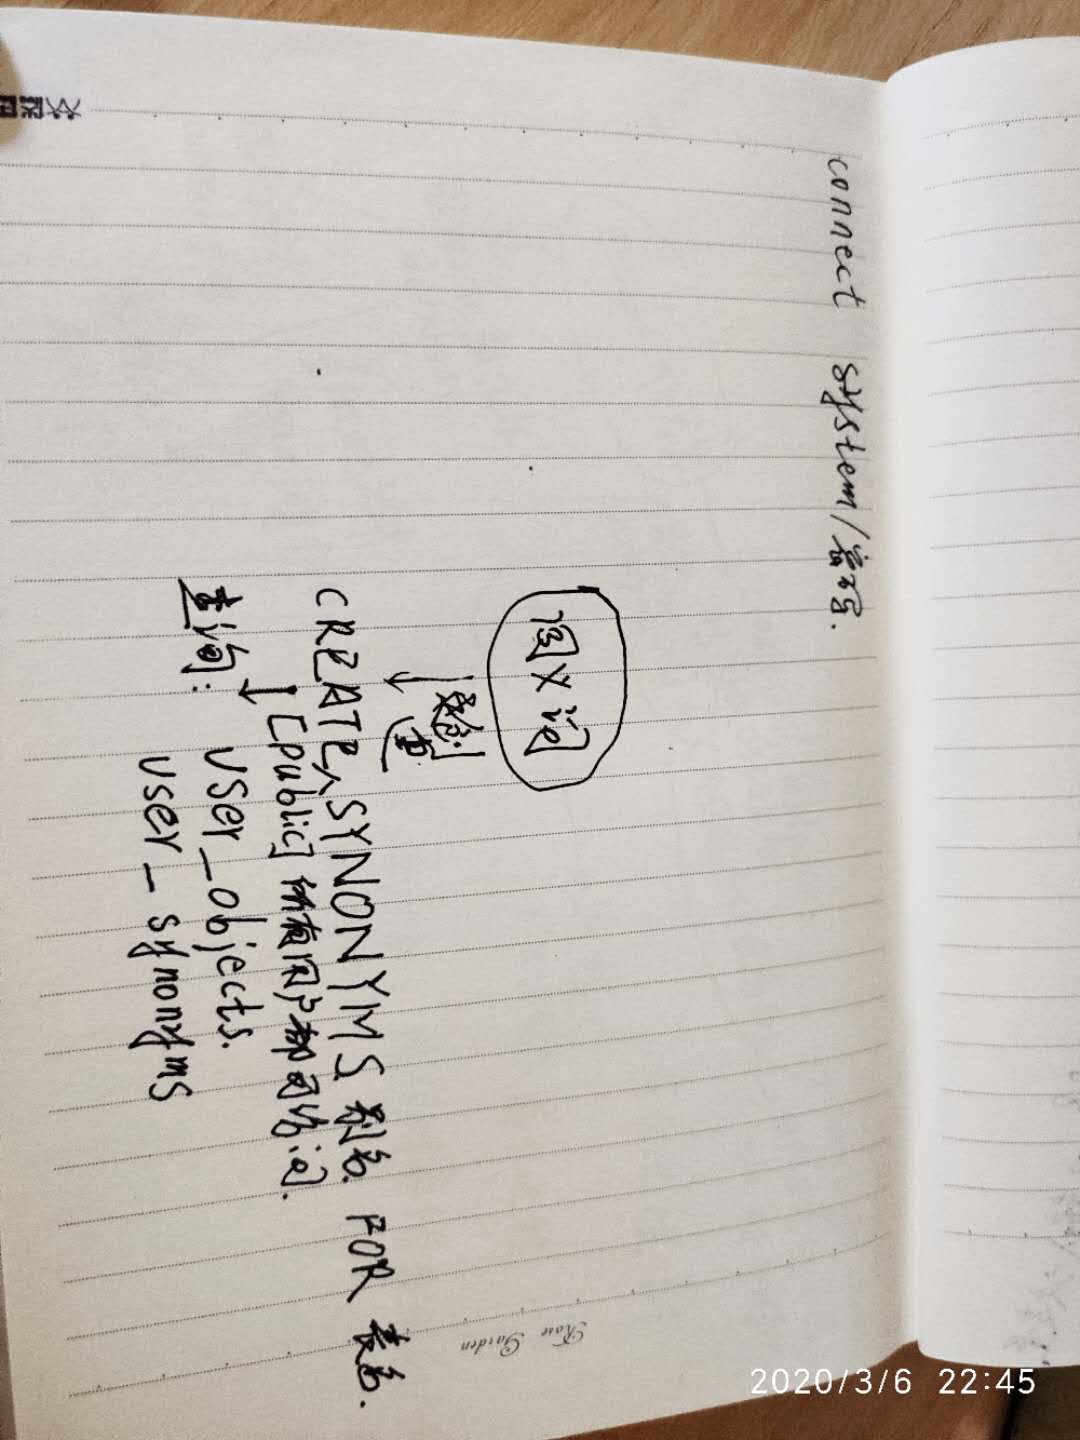 connect system/密码.
同义词
CREATE SYNONYMS 别名 FOR 表名.
[public] 所有用户都可访问.
查询: user_objects.
user_synonyms
Rose Garden
2020/3/6 22:45